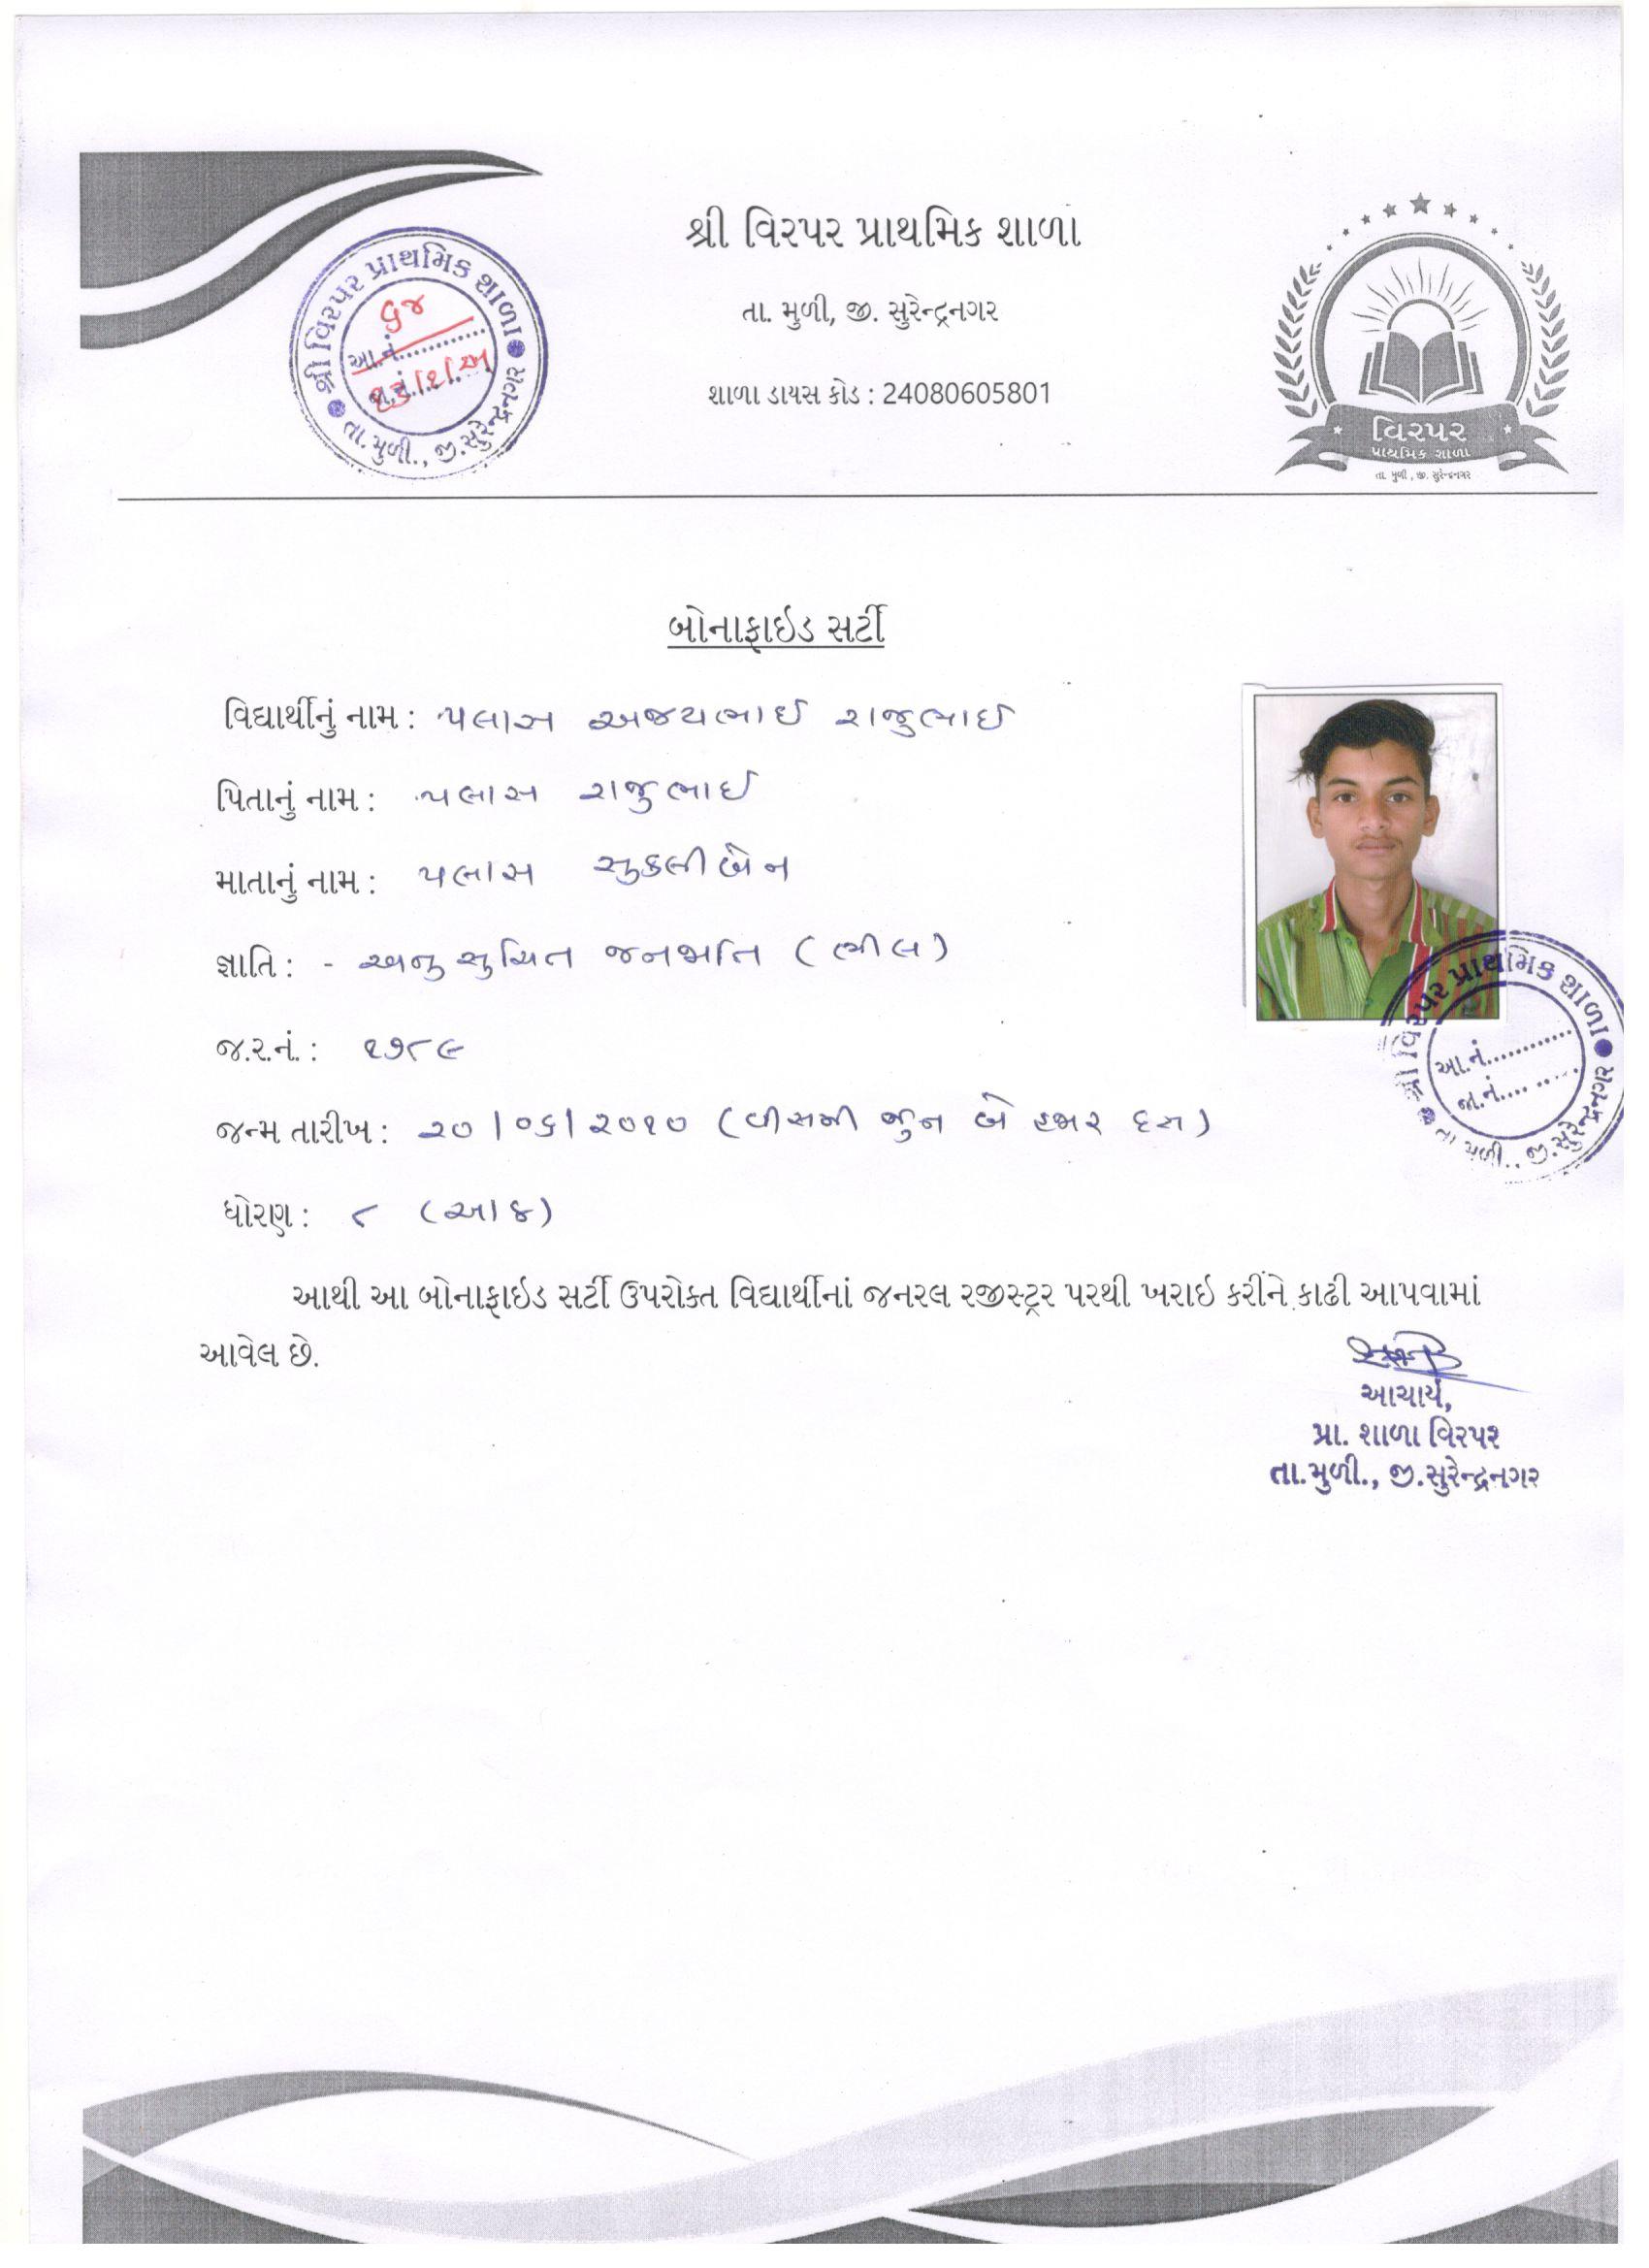 શ્રી વિરપર પ્રાથમિક શાળા
તા. મુળી, જી. સુરેન્દ્રનગર
શાળા ડાયસ કોડ : 24080605801
શ્રી વિરપર પ્રાથમિક શાળા
આ.નં............
તા.મુળી., જી.સુરેન્દ્રનગર
વિરપર
પ્રાથમિક શાળા
તા. મુળી , જી. સુરેન્દ્રનગર
બોનાફાઇડ સર્ટી
વિદ્યાર્થીનું નામ : પલાસ અજયભાઈ રાજુભાઈ
પિતાનું નામ : પલાસ રાજુભાઈ
માતાનું નામ : પલાસ સુકલીબેન
જ્ઞાતિ : - અનુસુચિત જનજાતિ (ભીલ)
જ.ર.નં. : ૧૭૮૯
જન્મ તારીખ : ૨૦/૦૬/૨૦૧૦ (વીસમી જુન બે હજાર દસ)
ધોરણ : ૮ (આઠ)
શ્રી વિરપર પ્રાથમિક શાળા
આ.નં............
જા.નં............
તા.મુળી., જી.સુરેન્દ્રનગર
આથી આ બોનાફાઇડ સર્ટી ઉપરોક્ત વિદ્યાર્થીનાં જનરલ રજીસ્ટ્રર પરથી ખરાઇ કરીને કાઢી આપવામાં
આવેલ છે.
આચાર્ય,
પ્રા. શાળા વિરપર
તા.મુળી., જી.સુરેન્દ્રનગર